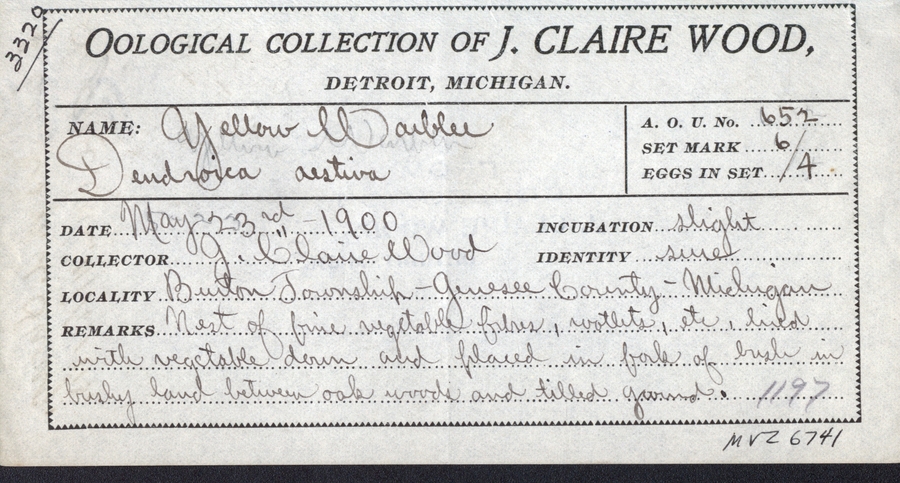 3320
OOLOGICAL COLLECTION OF J. CLAIRE WOOD,
DETROIT, MICHIGAN.
NAME: Yellow Warbler
Dendroica aestiva
A. O. U. No. 652
SET MARK 6/
EGGS IN SET /4
DATE May 23rd - 1900
INCUBATION slight
COLLECTOR J. Claire Wood
IDENTITY sure
LOCALITY Burton Township - Genesee County - Michigan
REMARKS Nest of fine vegetable fibres, rootlets, etc. lined
with vegetable down and placed in fork of bush in
bushy land between oak woods and tilled ground. 1197
MVZ 6741